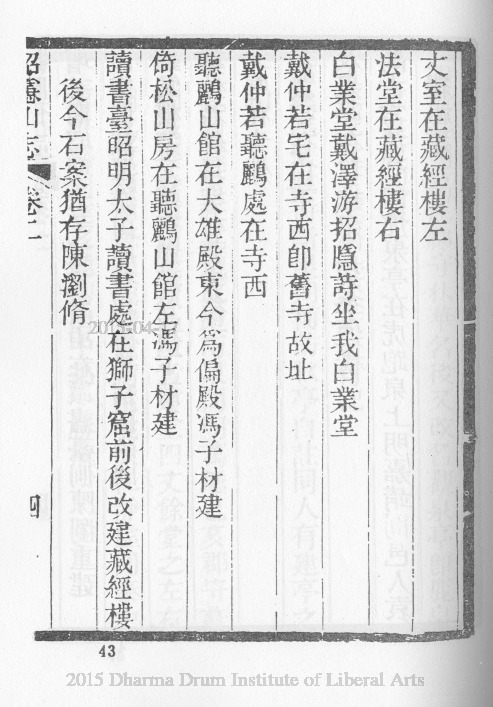 丈室在藏經樓左
法堂在藏經樓右
白業堂戴澤游招隱詩坐我白業堂
戴仲若宅在寺西卽舊寺故址
戴仲若聽鸝處在寺西
聽鸝山館在大雄殿東今爲偏殿馮子材建
倚松山房在聽鸝山館左馮子材建
讀書臺昭明太子讀書處在獅子窟前後改建藏經樓
後今石案猶存陳瀏脩
招隱山志 卷二
四
43
2015 Dharma Drum Institute of Liberal Arts